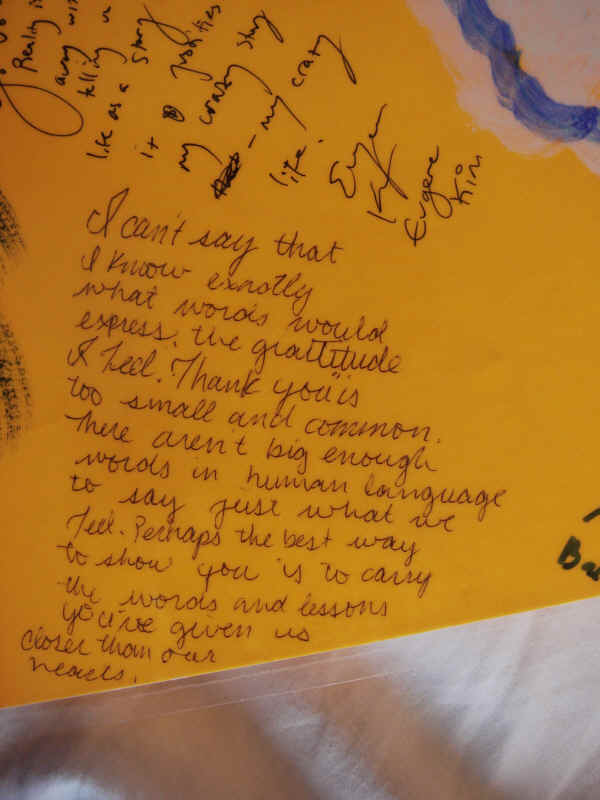 Reality is
away wi
telling
life as a story
it justifies
my crazy story
- my crazy
life.
Eugene
Kim
I can't say that
I know exactly
what words would
express the grattitude
I feel. "Thank you" is
too small and common.
There aren't big enough
words in human language
to say just what we
feel. Perhaps the best way
to show you is to carry
the words and lessons
you've given us
closer than our
hearts.
Ba